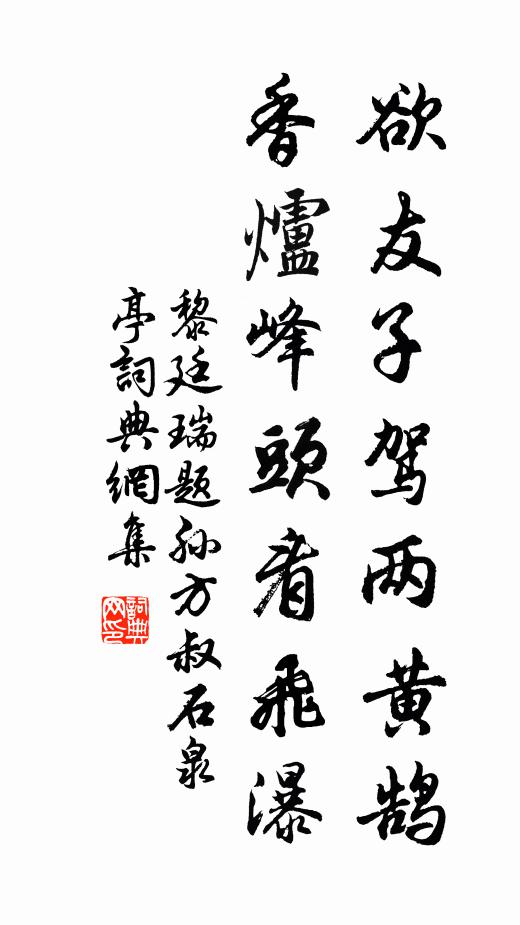 欲友子驾两黄鹄
香爐峰頭看飛瀑
黎廷瑞题孙方叔石泉
亭詞典網集
詞典网印